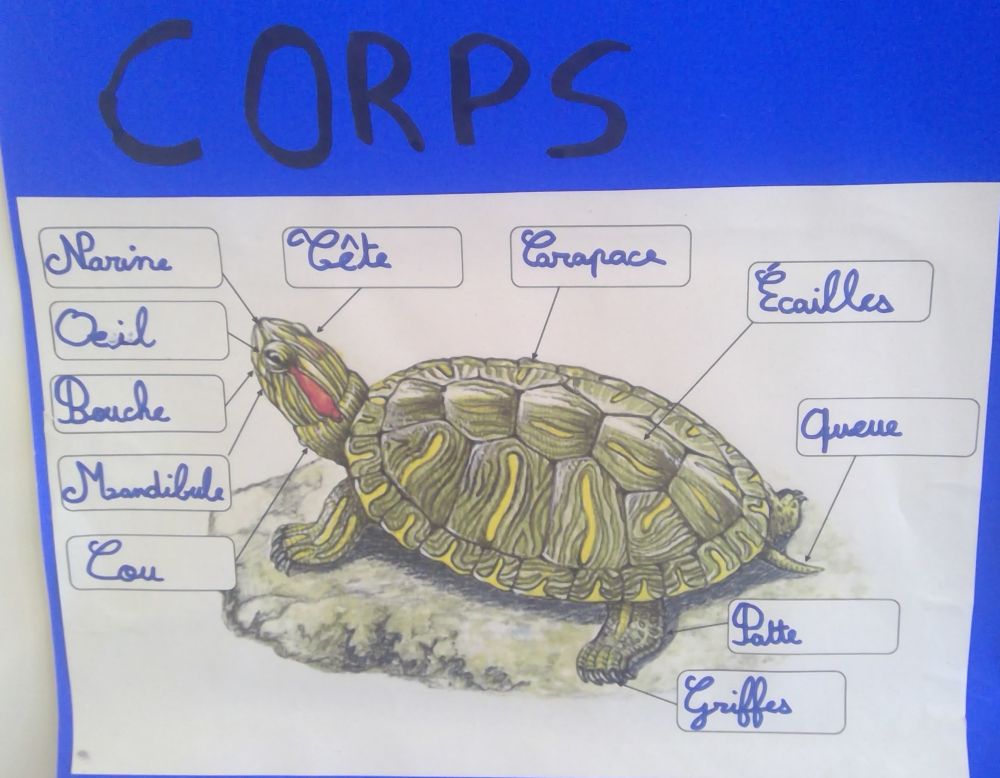 CORPS
Narine
Tête
Carapace
Écailles
Oeil
Bouche
Queue
Mandibule
Cou
Patte
Griffes